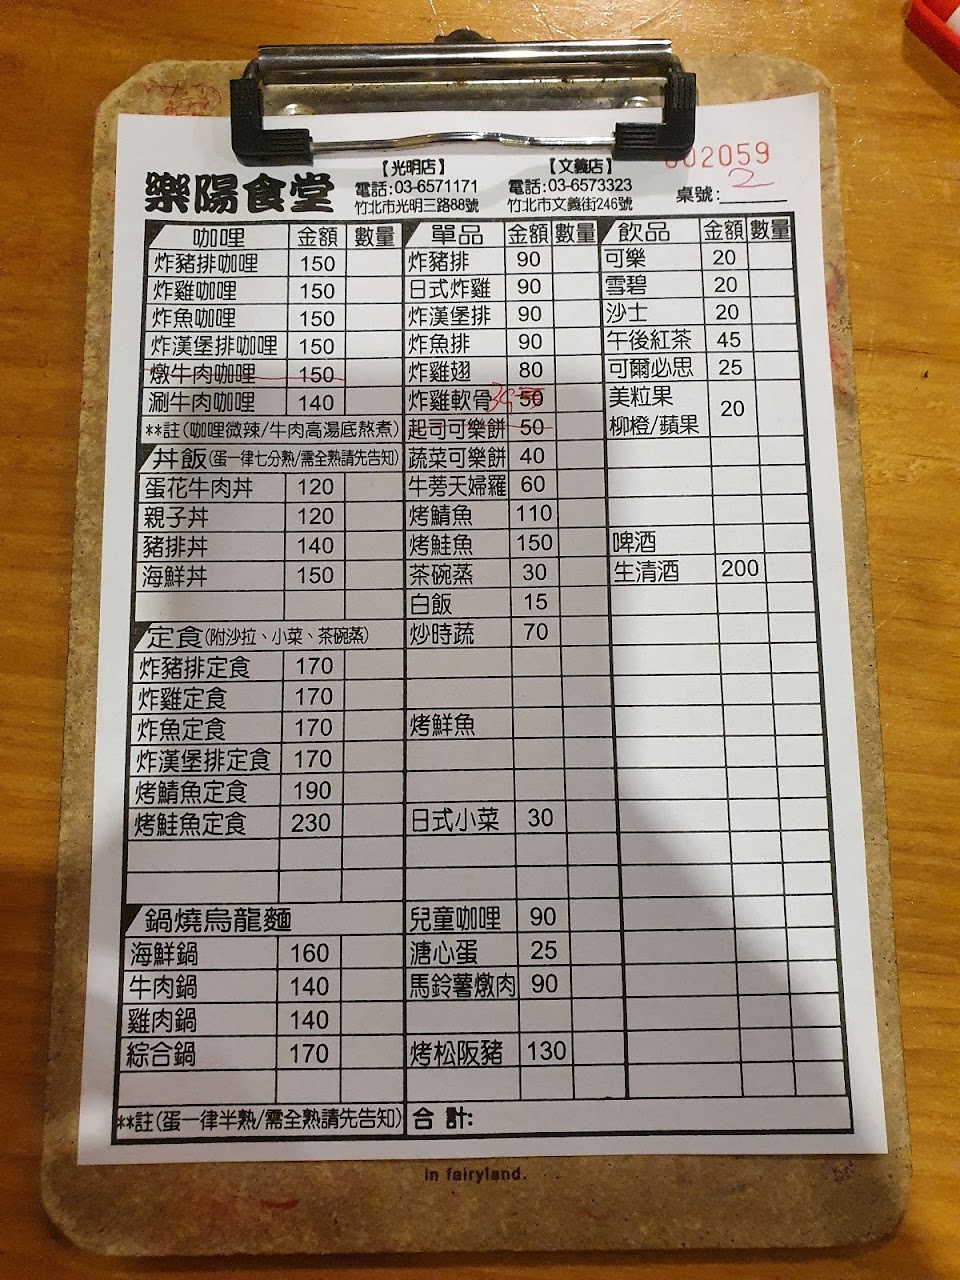 002059
樂陽食堂
【光明店】
電話:03-6571171
竹北市光明三路88號
【文義店】
電話:03-6573323
竹北市文義街246號
桌號: 2
咖哩 金額 數量
炸豬排咖哩 150
炸雞咖哩 150
炸魚咖哩 150
炸漢堡排咖哩 150
燉牛肉咖哩 150
涮牛肉咖哩 140
**註(咖哩微辣/牛肉高湯底熬煮)
丼飯(蛋一律七分熟/需全熟請先告知)
蛋花牛肉丼 120
親子丼 120
豬排丼 140
海鮮丼 150
定食(附沙拉、小菜、茶碗蒸)
炸豬排定食 170
炸雞定食 170
炸魚定食 170
炸漢堡排定食 170
烤鯖魚定食 190
烤鮭魚定食 230
鍋燒烏龍麵
海鮮鍋 160
牛肉鍋 140
雞肉鍋 140
綜合鍋 170
**註(蛋一律半熟/需全熟請先告知)
單品 金額 數量
炸豬排 90
日式炸雞 90
炸漢堡排 90
炸魚排 90
炸雞翅 80
炸雞軟骨 50
起司可樂餅 50
蔬菜可樂餅 40
牛蒡天婦羅 60
烤鯖魚 110
烤鮭魚 150
茶碗蒸 30
白飯 15
炒時蔬 70
烤鮮魚
日式小菜 30
兒童咖哩 90
溏心蛋 25
馬鈴薯燉肉 90
烤松阪豬 130
合計:
飲品 金額 數量
可樂 20
雪碧 20
沙士 20
午後紅茶 45
可爾必思 25
美粒果
柳橙/蘋果 20
啤酒
生清酒 200
in fairyland.